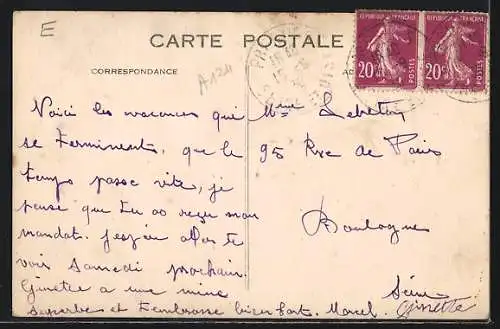 E
CARTE POSTALE
CORRESPONDANCE
REPUBLIQUE FRANÇAISE
20c
POSTES
REPUBLIQUE FRANÇAISE
20c
POSTES
Voici les vacances qui
se terminent, que le
temps passe vite, je
pense que tu as reçu mon
mandat. J'espère alors te
voir samedi prochain.
Ginette a une mine
superbe et t'embrasse bien fort. Marcel. Ginette
Mme Lebreton
95 Rue de Paris
Boulogne
Seine